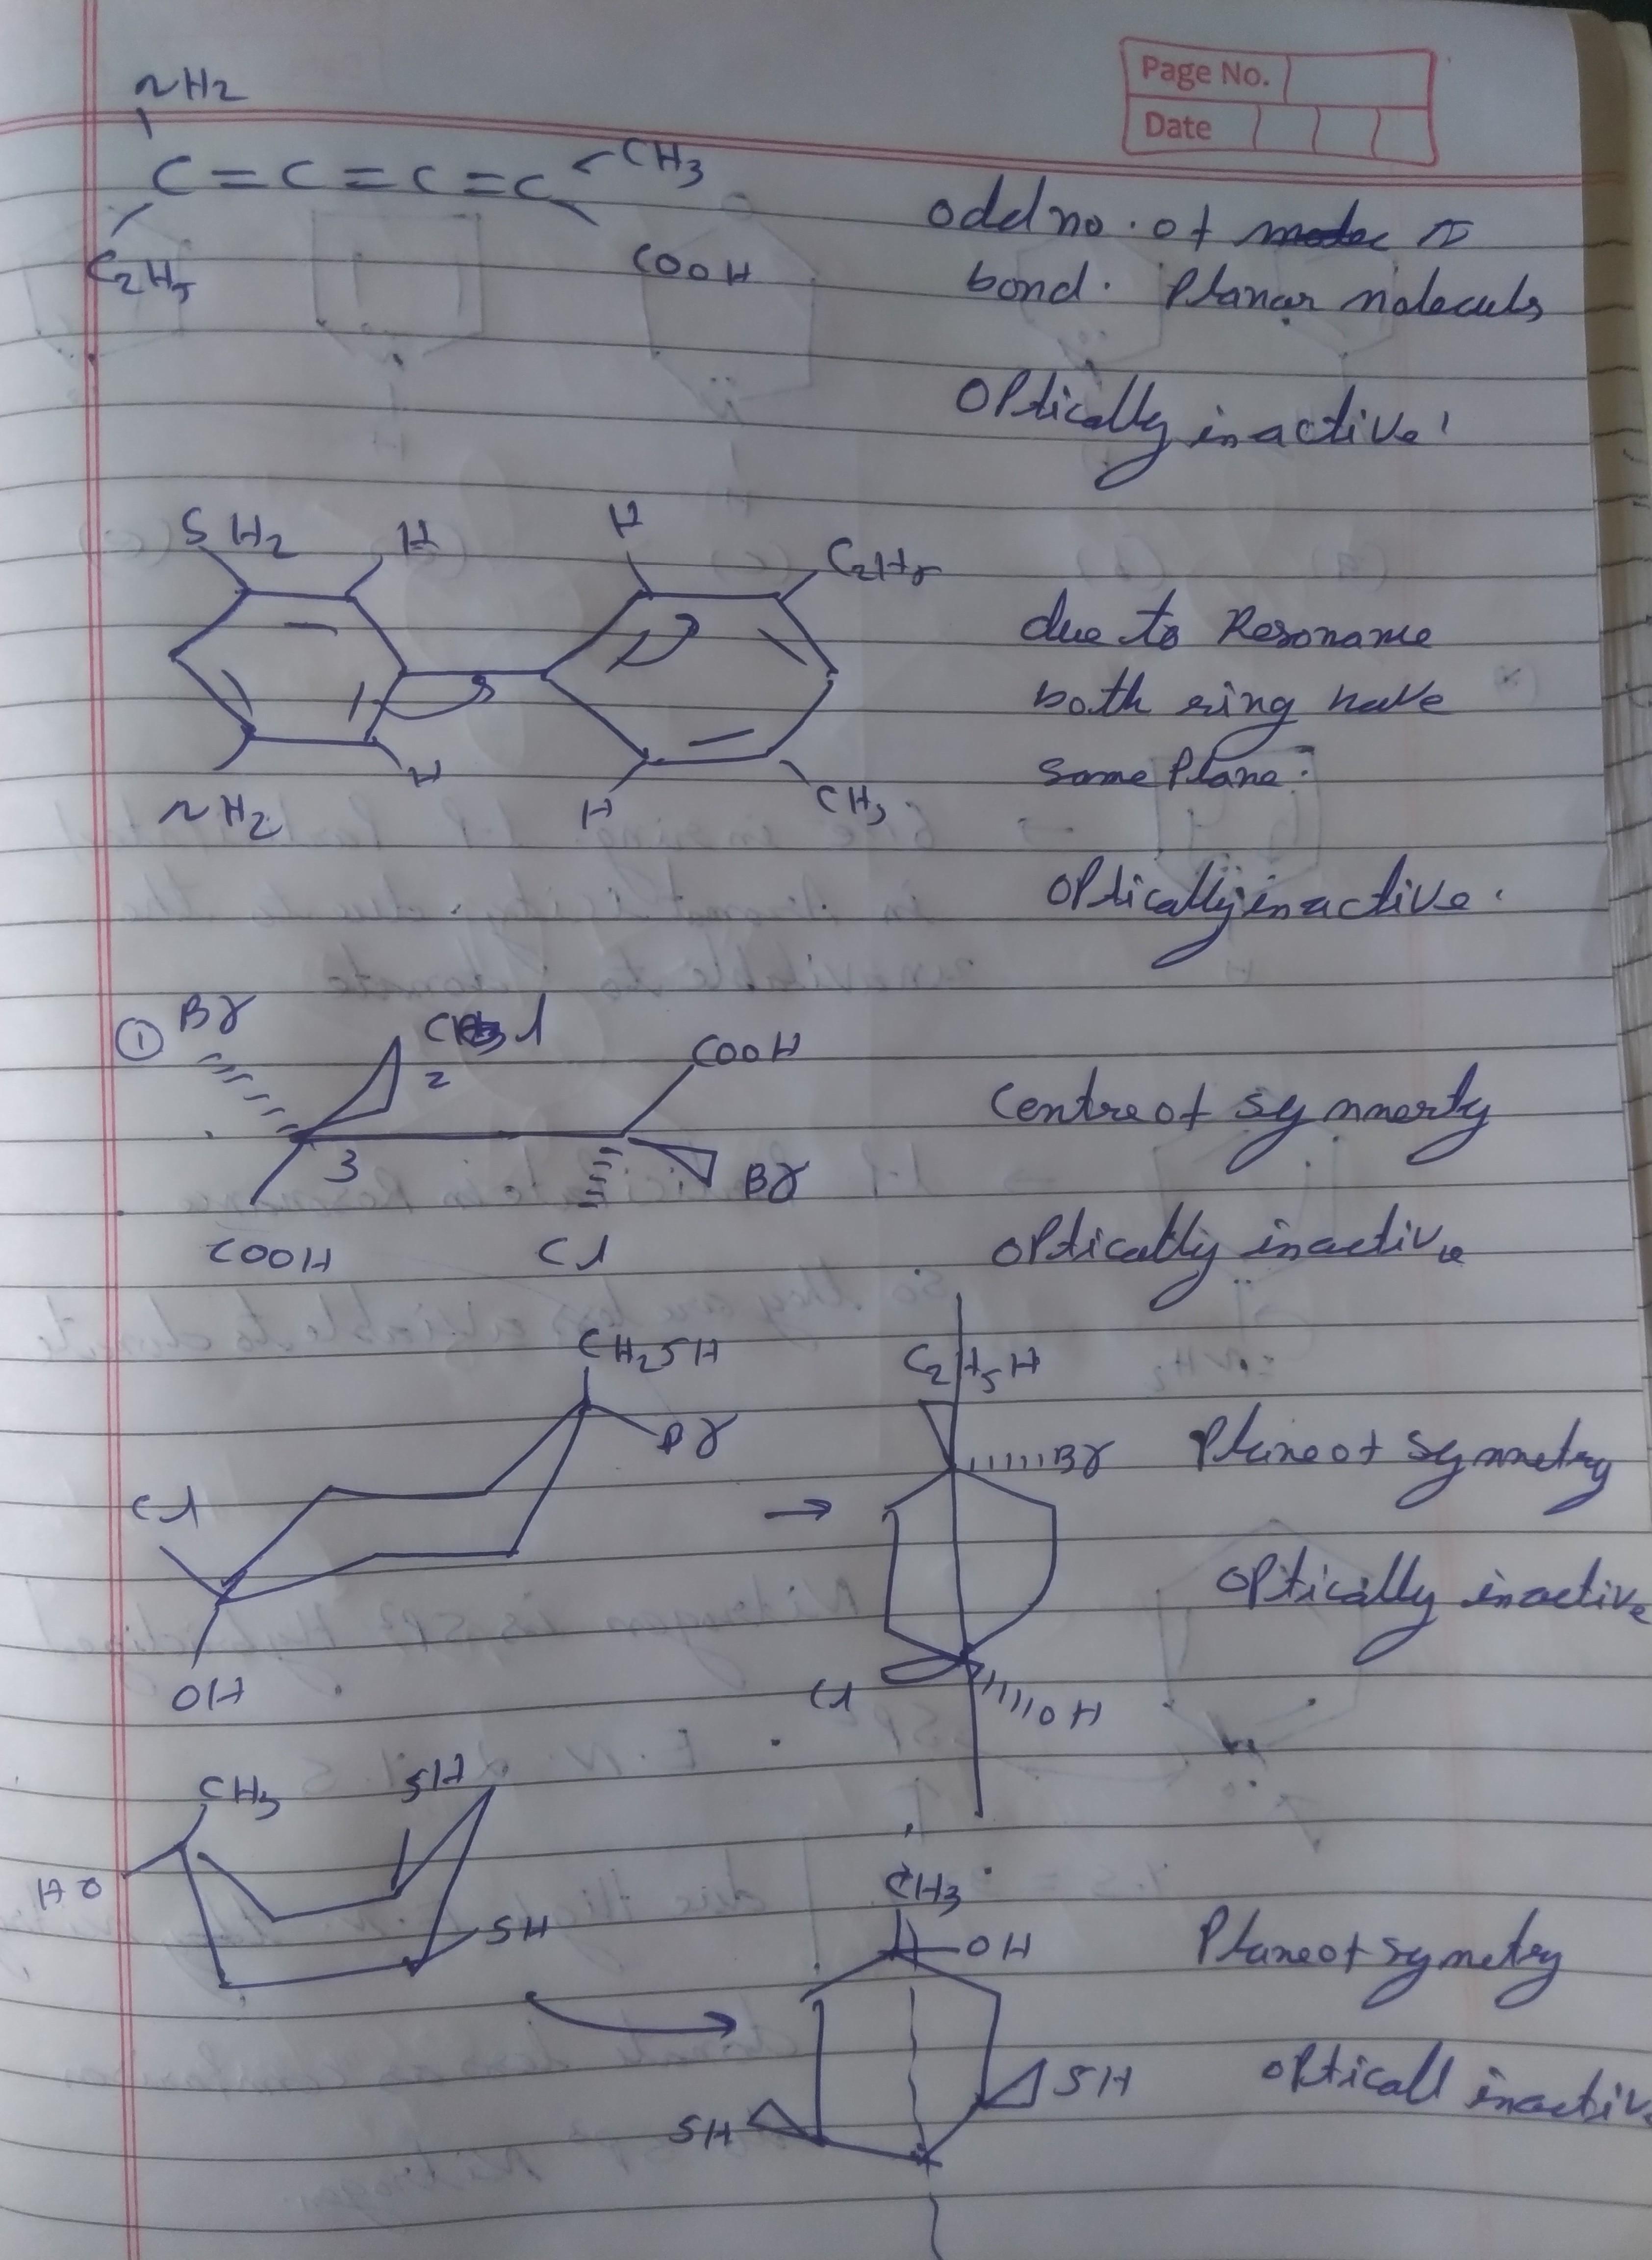 Page No.
Date
NH2
C = C = C = C
CH3
C2H5
COOH
odd no. of π
bond. Planar molecules
Optically inactive
SH2 H
H C2H5
NH2 H
H CH3
due to Resonance
both ring have
same Plane.
optically inactive.
① Br
Cl
2
COOH
3
Br
COOH
Cl
Centre of symmerty
optically inactive
CH2SH
Br
Cl
OH
→
C2H5H
Br
Cl
OH
Plane of symmetry
optically inactive
CH3 SH
HO
SH
CH3
OH
SH
SH
Plane of symetry
opticall inactive